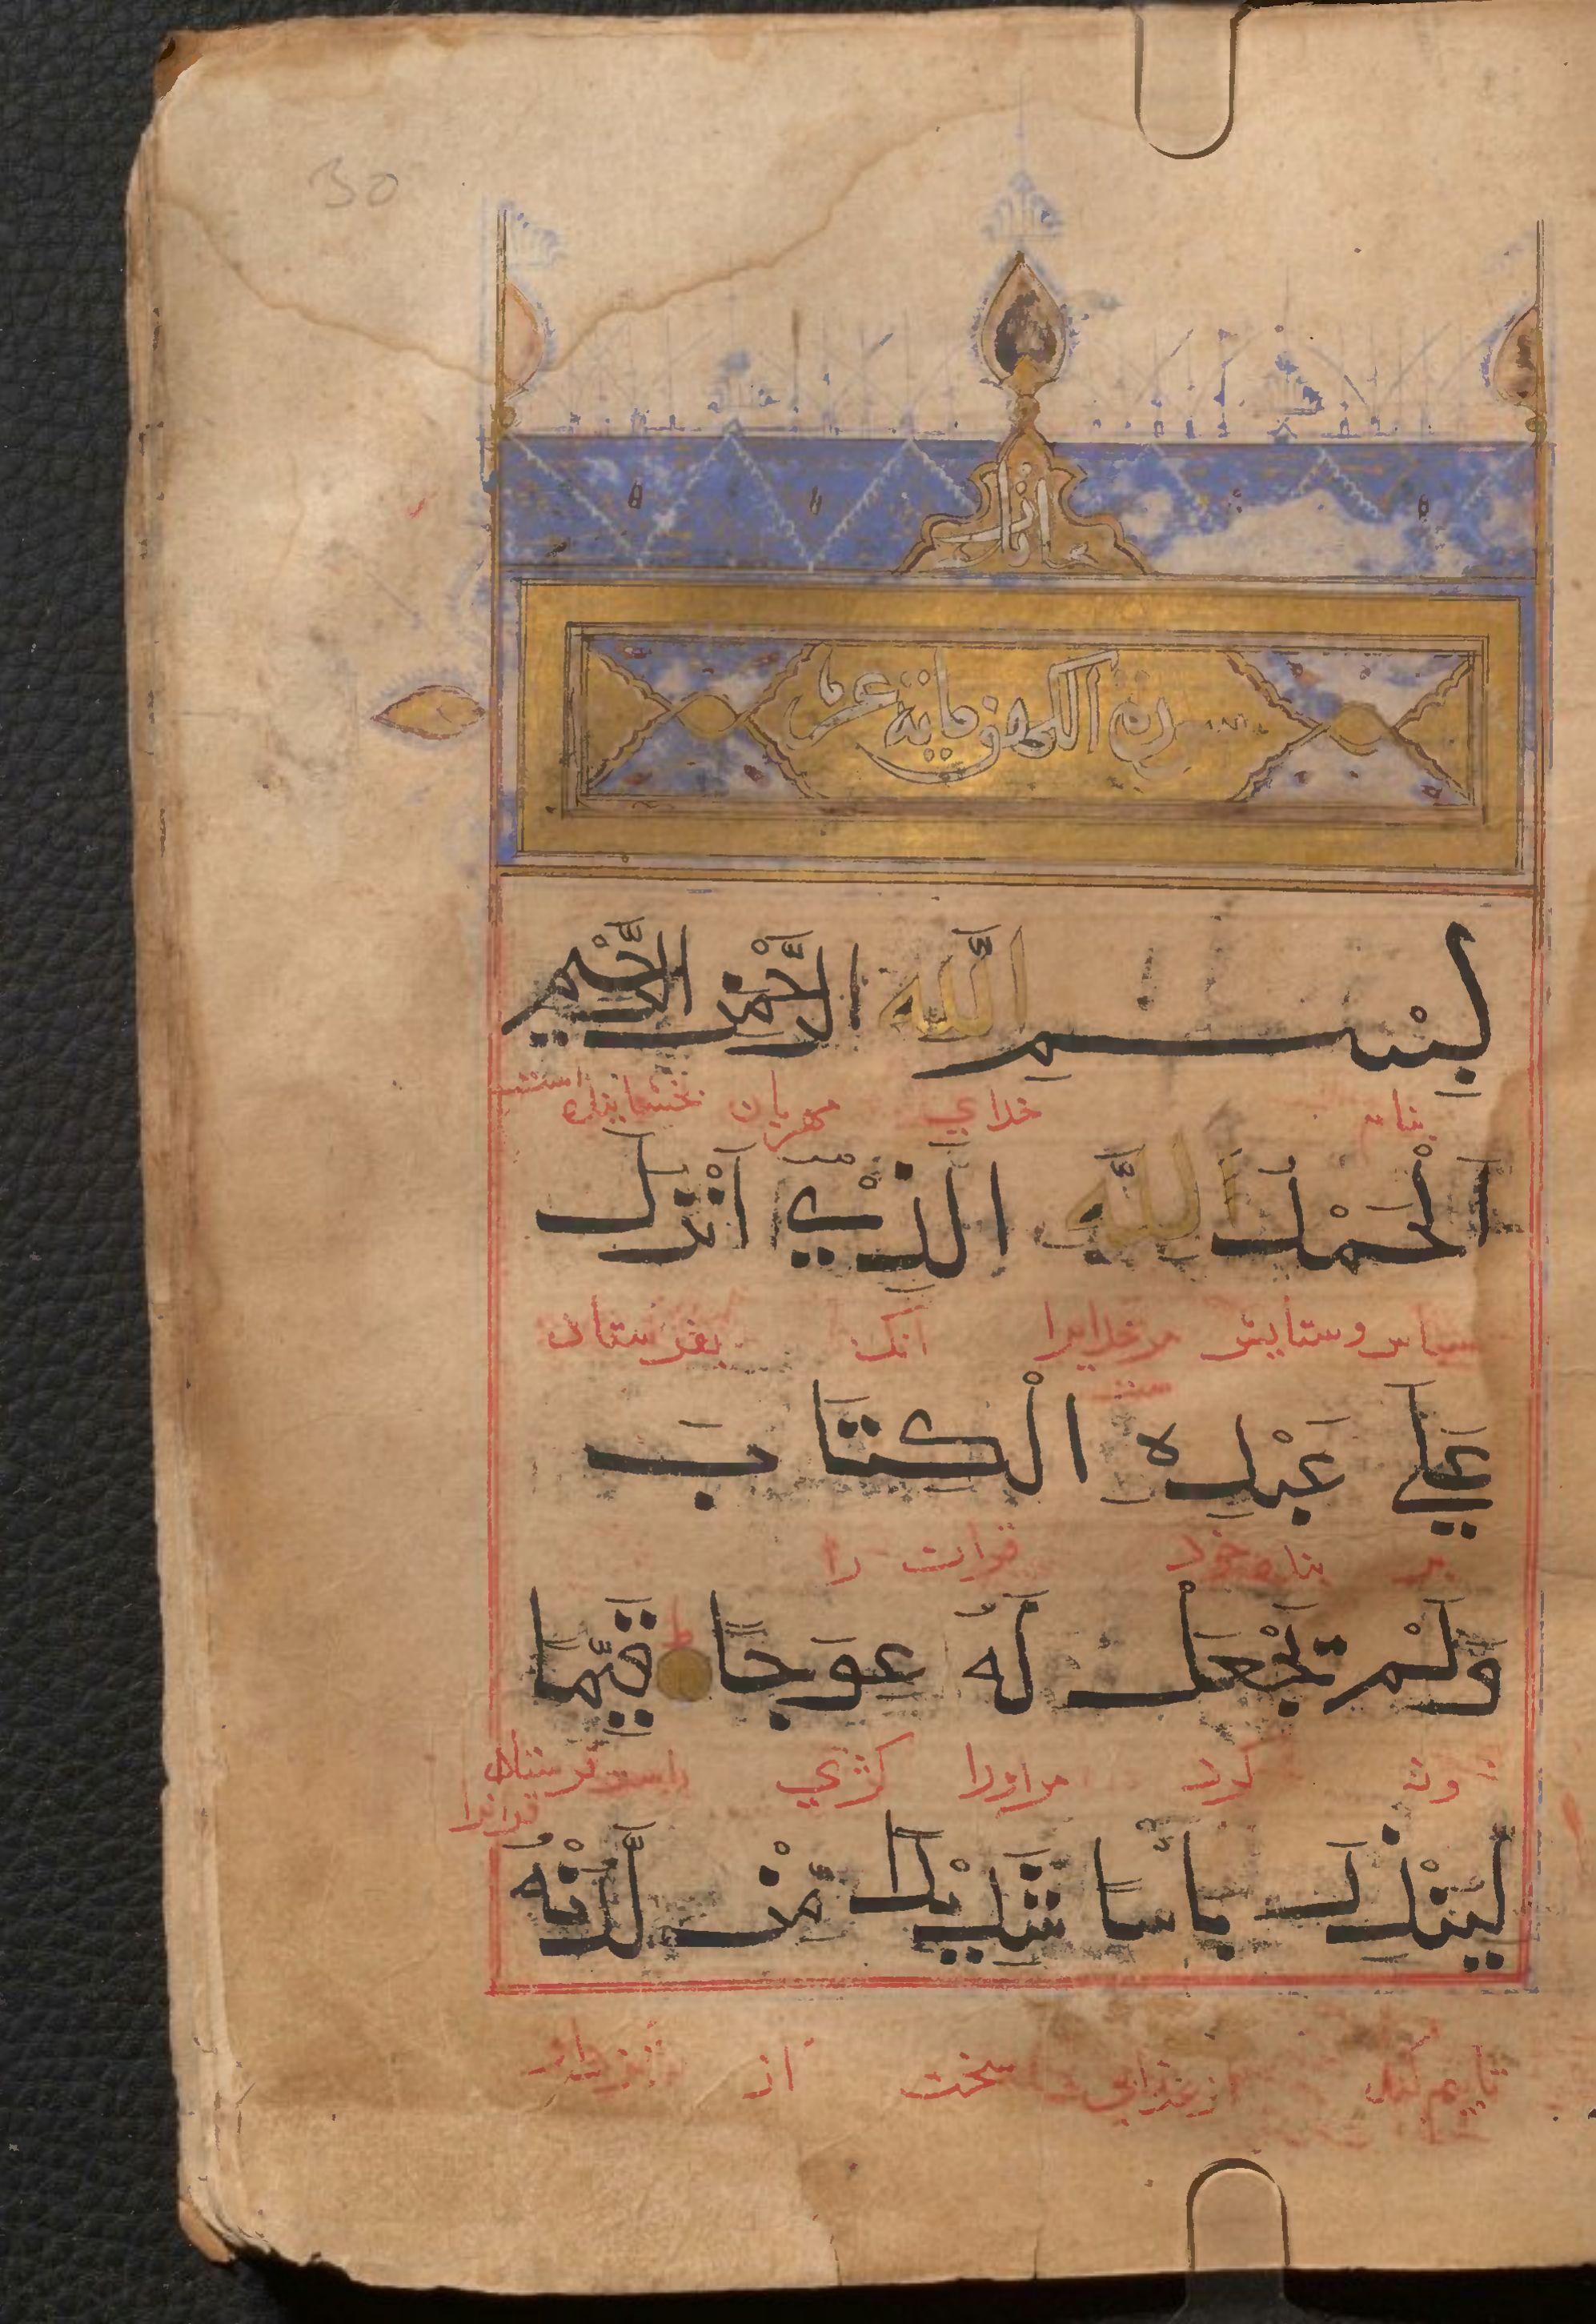 30
الكهف و مائة عشر
بِسْمِ اللَّهِ الرَّحْمٰنِ الرَّحِيمِ
بنام خداي مهربان بخشاينده
اَلْحَمْدُ لِلَّهِ الَّذِيْ اَنْزَلَ
سپاس و ستايش مر خدايرا آنك بفرستاد
عَلٰي عَبْدِهِ الْكِتَابَ
بر بنده خود قرآن را
وَلَمْ يَجْعَلْ لَهُ عِوَجًا قَيِّمًا
ون كرد مر اورا كژي راست
لِيُنْذِرَ بَأْسًا شَدِيْدًا مِنْ لَّدُنْهُ
تا بيم كند از عذابي سخت از